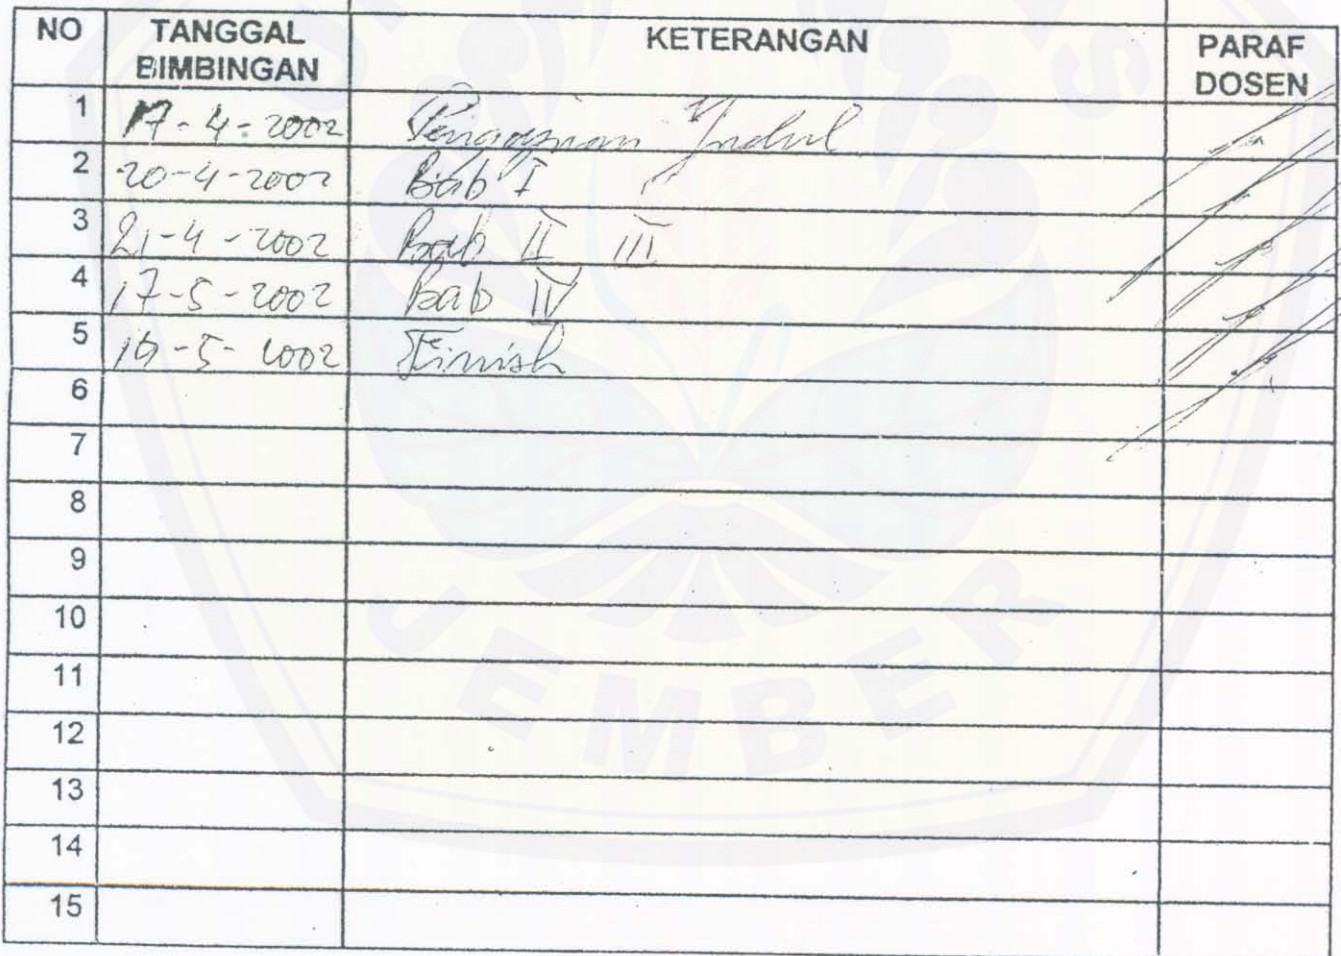 NO TANGGAL BIMBINGAN KETERANGAN PARAF DOSEN
1 17-4-2002 Pengajuan Judul
2 20-4-2002 Bab I
3 21-4-2002 Bab II III
4 17-5-2002 Bab IV
5 -5-2002 Finish
6
7
8
9
10
11
12
13
14
15
JEMBER